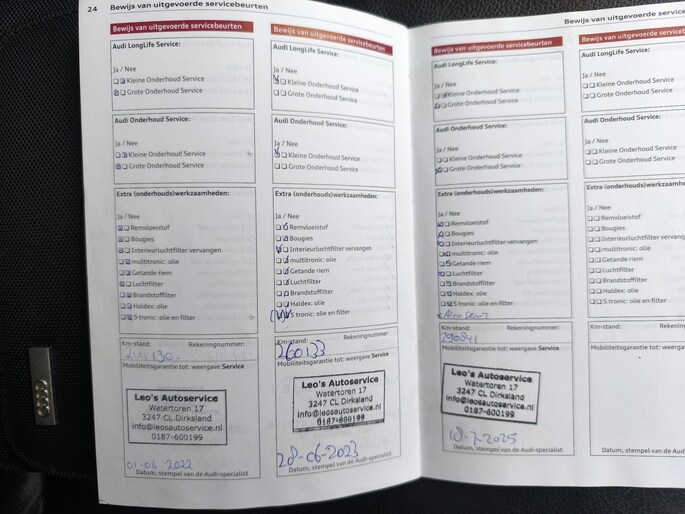 24 Bewijs van uitgevoerde servicebeurten
Bewijs van uitgevoerde servicebeurten
Audi LongLife Service:
Ja / Nee
Kleine Onderhoud Service
Grote Onderhoud Service
Audi Onderhoud Service:
Kleine Onderhoud Service
Grote Onderhoud Service
Extra (onderhouds)werkzaamheden:
Ja / Nee
Remvloeistof
Bougies
Interieurluchtfilter vervangen
multitronic: olie
Getande riem
Luchtfilter
Brandstoffilter
Haldex: olie
S tronic: olie en filter
Km-stand: Rekeningnummer:
130
Mobiliteitsgarantie tot: weergave Service
Leo's Autoservice
Watertoren 17
3247 CL Dirksland
info@leosautoservice.nl
0187-600199
01-06-2022
Datum, stempel van de Audi-specialist
Bewijs van uitgevoerde servicebeurten
Audi LongLife Service:
Ja / Nee
Kleine Onderhoud Service
Grote Onderhoud Service
Audi Onderhoud Service:
Kleine Onderhoud Service
Grote Onderhoud Service
Extra (onderhouds)werkzaamheden:
Ja / Nee
Remvloeistof
Bougies
Interieurluchtfilter vervangen
multitronic: olie
Getande riem
Luchtfilter
Brandstoffilter
Haldex: olie
S tronic: olie en filter
Km-stand: Rekeningnummer:
260133
Mobiliteitsgarantie tot: weergave Service
Leo's Autoservice
Watertoren 17
3247 CL Dirksland
info@leosautoservice.nl
0187-600199
28-06-2023
Datum, stempel van de Audi-specialist
Bewijs van uitgevoerde se
Bewijs van uitgevoerde servicebeurten
Audi LongLife Service:
Ja / Nee
Kleine Onderhoud Service
Grote Onderhoud Service
Audi Onderhoud Service:
Kleine Onderhoud Service
Grote Onderhoud Service
Extra (onderhouds)werkzaamheden:
Ja / Nee
Remvloeistof
Bougies
Interieurluchtfilter vervangen
multitronic: olie
Getande riem
Luchtfilter
Brandstoffilter
Haldex: olie
S tronic: olie en filter
Km-stand: Rekeningnummer:
290841
Mobiliteitsgarantie tot: weergave Service
Leo's Autoservice
Watertoren 17
3247 CL Dirksland
info@leosautoservice.nl
0187-600199
18-7-2025
Datum, stempel van de Audi-specialist
Bewijs van uitgevoerde servicebe
Audi LongLife Service:
Ja / Nee
Kleine Onderhoud Service
Grote Onderhoud Service
Audi Onderhoud Service:
Ja / Nee
Kleine Onderhoud Service
Grote Onderhoud Service
Extra (onderhouds)werkzaamheden:
Ja / Nee
Remvloeistof
Bougies
Interieurluchtfilter vervangen
multitronic: olie
Getande riem
Luchtfilter
Brandstoffilter
Haldex: olie
S tronic: olie en filter
Km-stand: Rekening
Mobiliteitsgarantie tot: weergave
Datum, stempel van de Audi